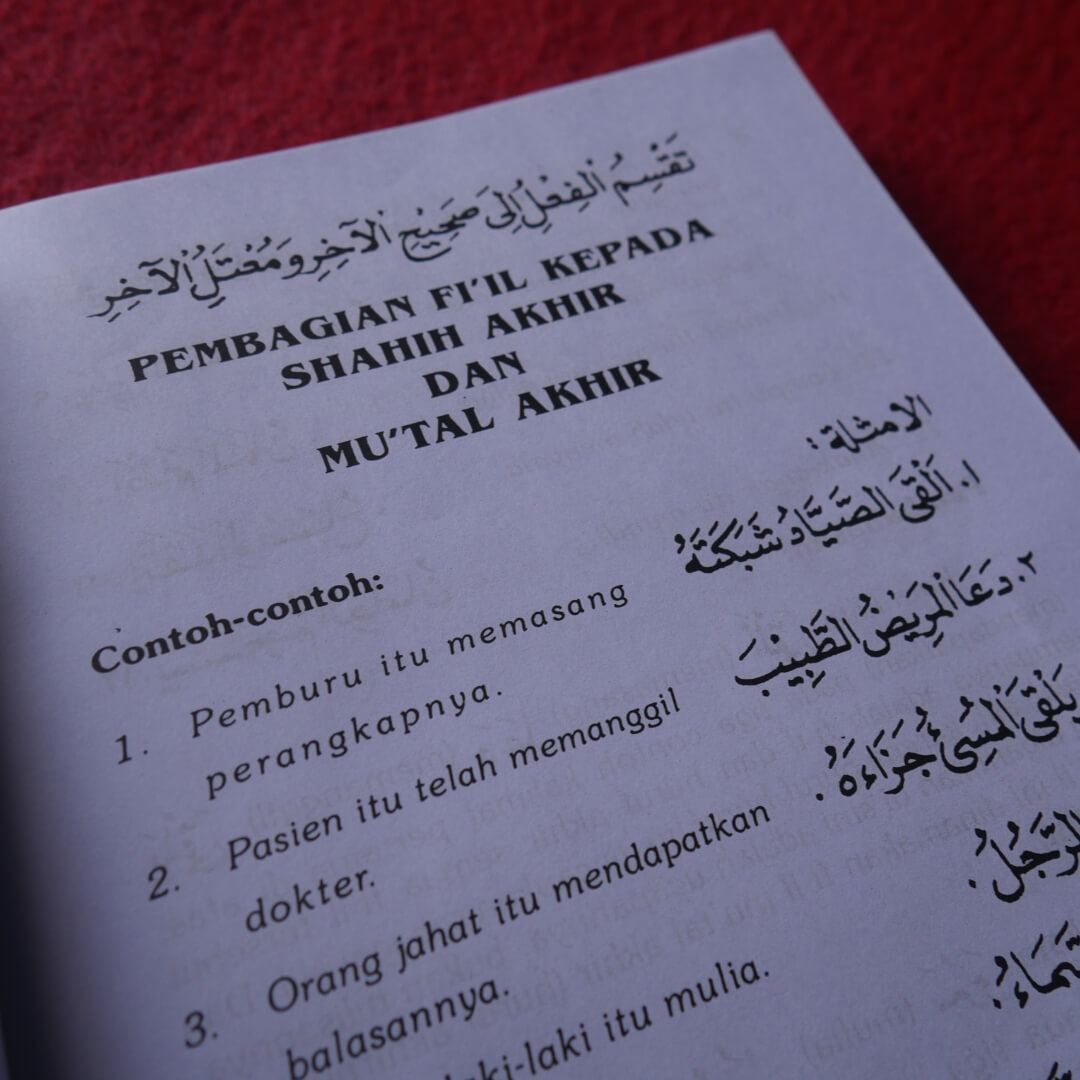 تَقْسِيْمُ الْفِعْلِ إِلَى صَحِيْحِ الْآخِرِ وَمُعْتَلِّ الْآخِرِ
PEMBAGIAN FI'IL KEPADA
SHAHIH AKHIR
DAN
MU'TAL AKHIR
الامثلة :
Contoh-contoh:
١. اَلْقَى الصَّيَّادُ شَبَكَتَهُ
1. Pemburu itu memasang
perangkapnya.
٢. دَعَا الْمَرِيْضُ الطَّبِيْبَ
2. Pasien itu telah memanggil
dokter.
يَلْقَى الْمُسِىْءُ جَزَاءَهُ .
3. Orang jahat itu mendapatkan
balasannya.
الرَّجُلُ .
laki-laki itu mulia.